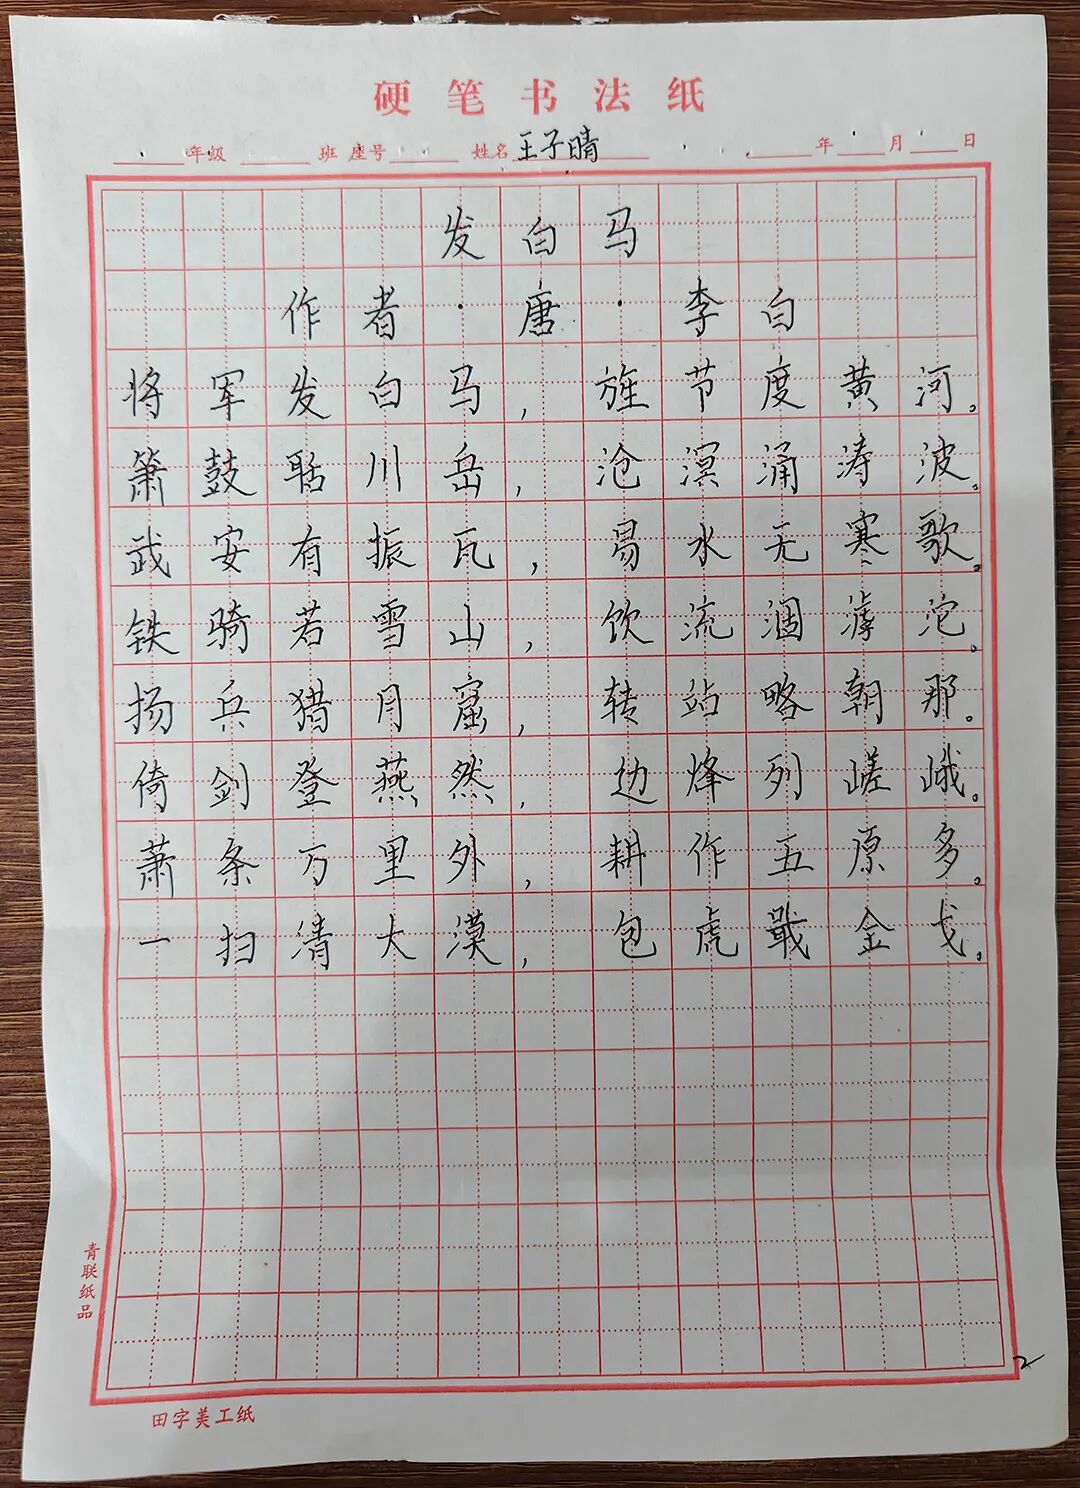 硬笔书法纸
年级 班 座号 姓名 王子晴 年 月 日
发白马
作者·唐·李白
将军发白马，旌节度黄河。
箫鼓聒川岳，沧溟涌涛波。
武安有振瓦，易水无寒歌。
铁骑若雪山，饮流涸滹沱。
扬兵猎月窟，转站略朝那。
倚剑登燕然，边烽列嵯峨。
萧条万里外，耕作五原多。
一扫清大漠，包虎戢金戈。
青联纸品
田字美工纸
2